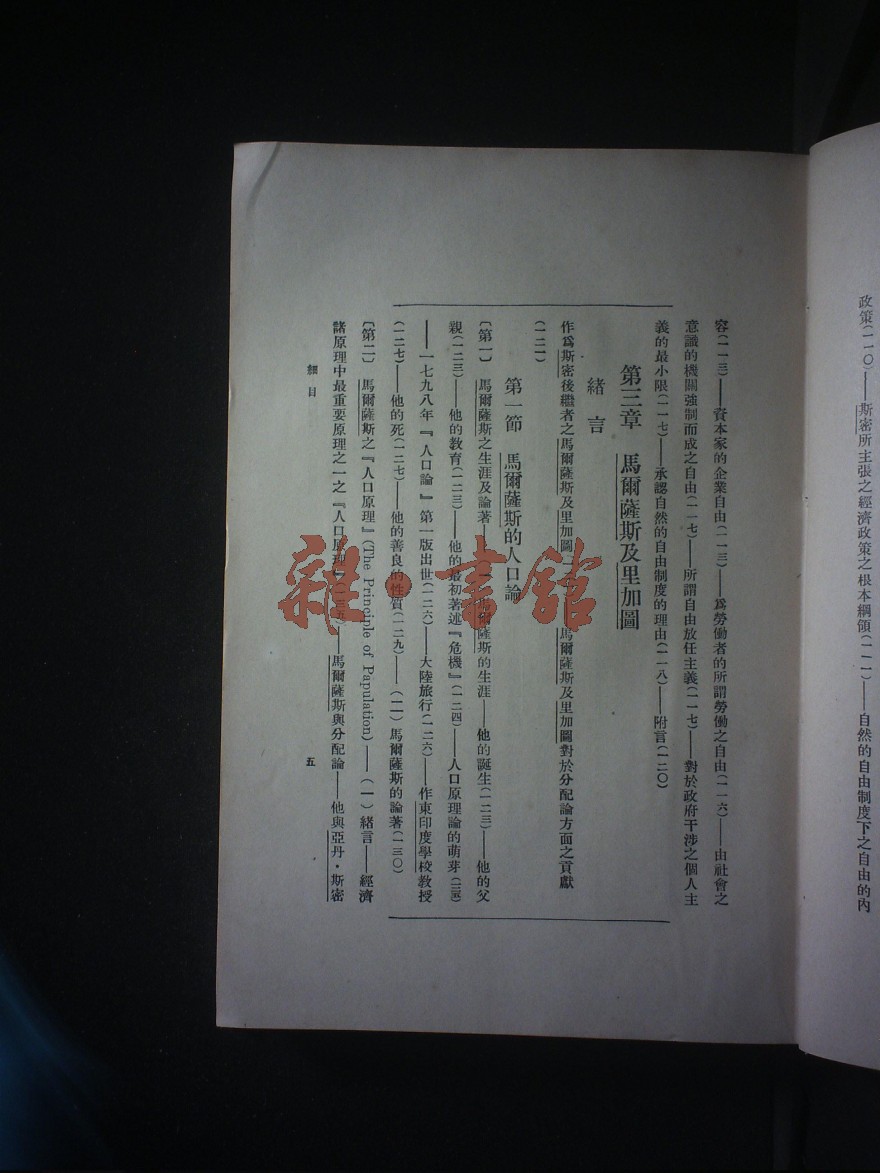 政策(一一〇)——斯密所主張之經濟政策之根本綱領(一一一)——自然的自由制度下之自由的內
容(一一三)——資本家的企業自由(一一三)——爲勞働者的所謂勞働之自由(一一六)——由社會之
意識的機關強制而成之自由(一一七)——所謂自由放任主義(一一七)——對於政府干涉之個人主
義的最小限(一一七)——承認自然的自由制度的理由(一一八)——附言(一二〇)
第三章 馬爾薩斯及里加圖
緒言
作爲斯密後繼者之馬爾薩斯及里加圖 馬爾薩斯及里加圖對於分配論方面之貢獻
(一二一)
第一節 馬爾薩斯的人口論
〔第一〕 馬爾薩斯之生涯及論著 馬爾薩斯的生涯——他的誕生(一二三)——他的父
親(一二三)——他的教育(一二三)——他的最初著述『危機』(一二四)——人口原理論的萌芽(一二五)
——一七九八年『人口論』第一版出世(一二六)——大陸旅行(一二六)——作東印度學校教授
(一二七)——他的死(一二七)——他的善良的性質(一二九)——(二)馬爾薩斯的論著(一三〇)
〔第二〕 馬爾薩斯之『人口原理』(The Principle of Papulation)——(一)緒言——經濟
諸原理中最重要原理之一之『人口原理』——馬爾薩斯與分配論——他與亞丹·斯密
細目
五
雜·書館